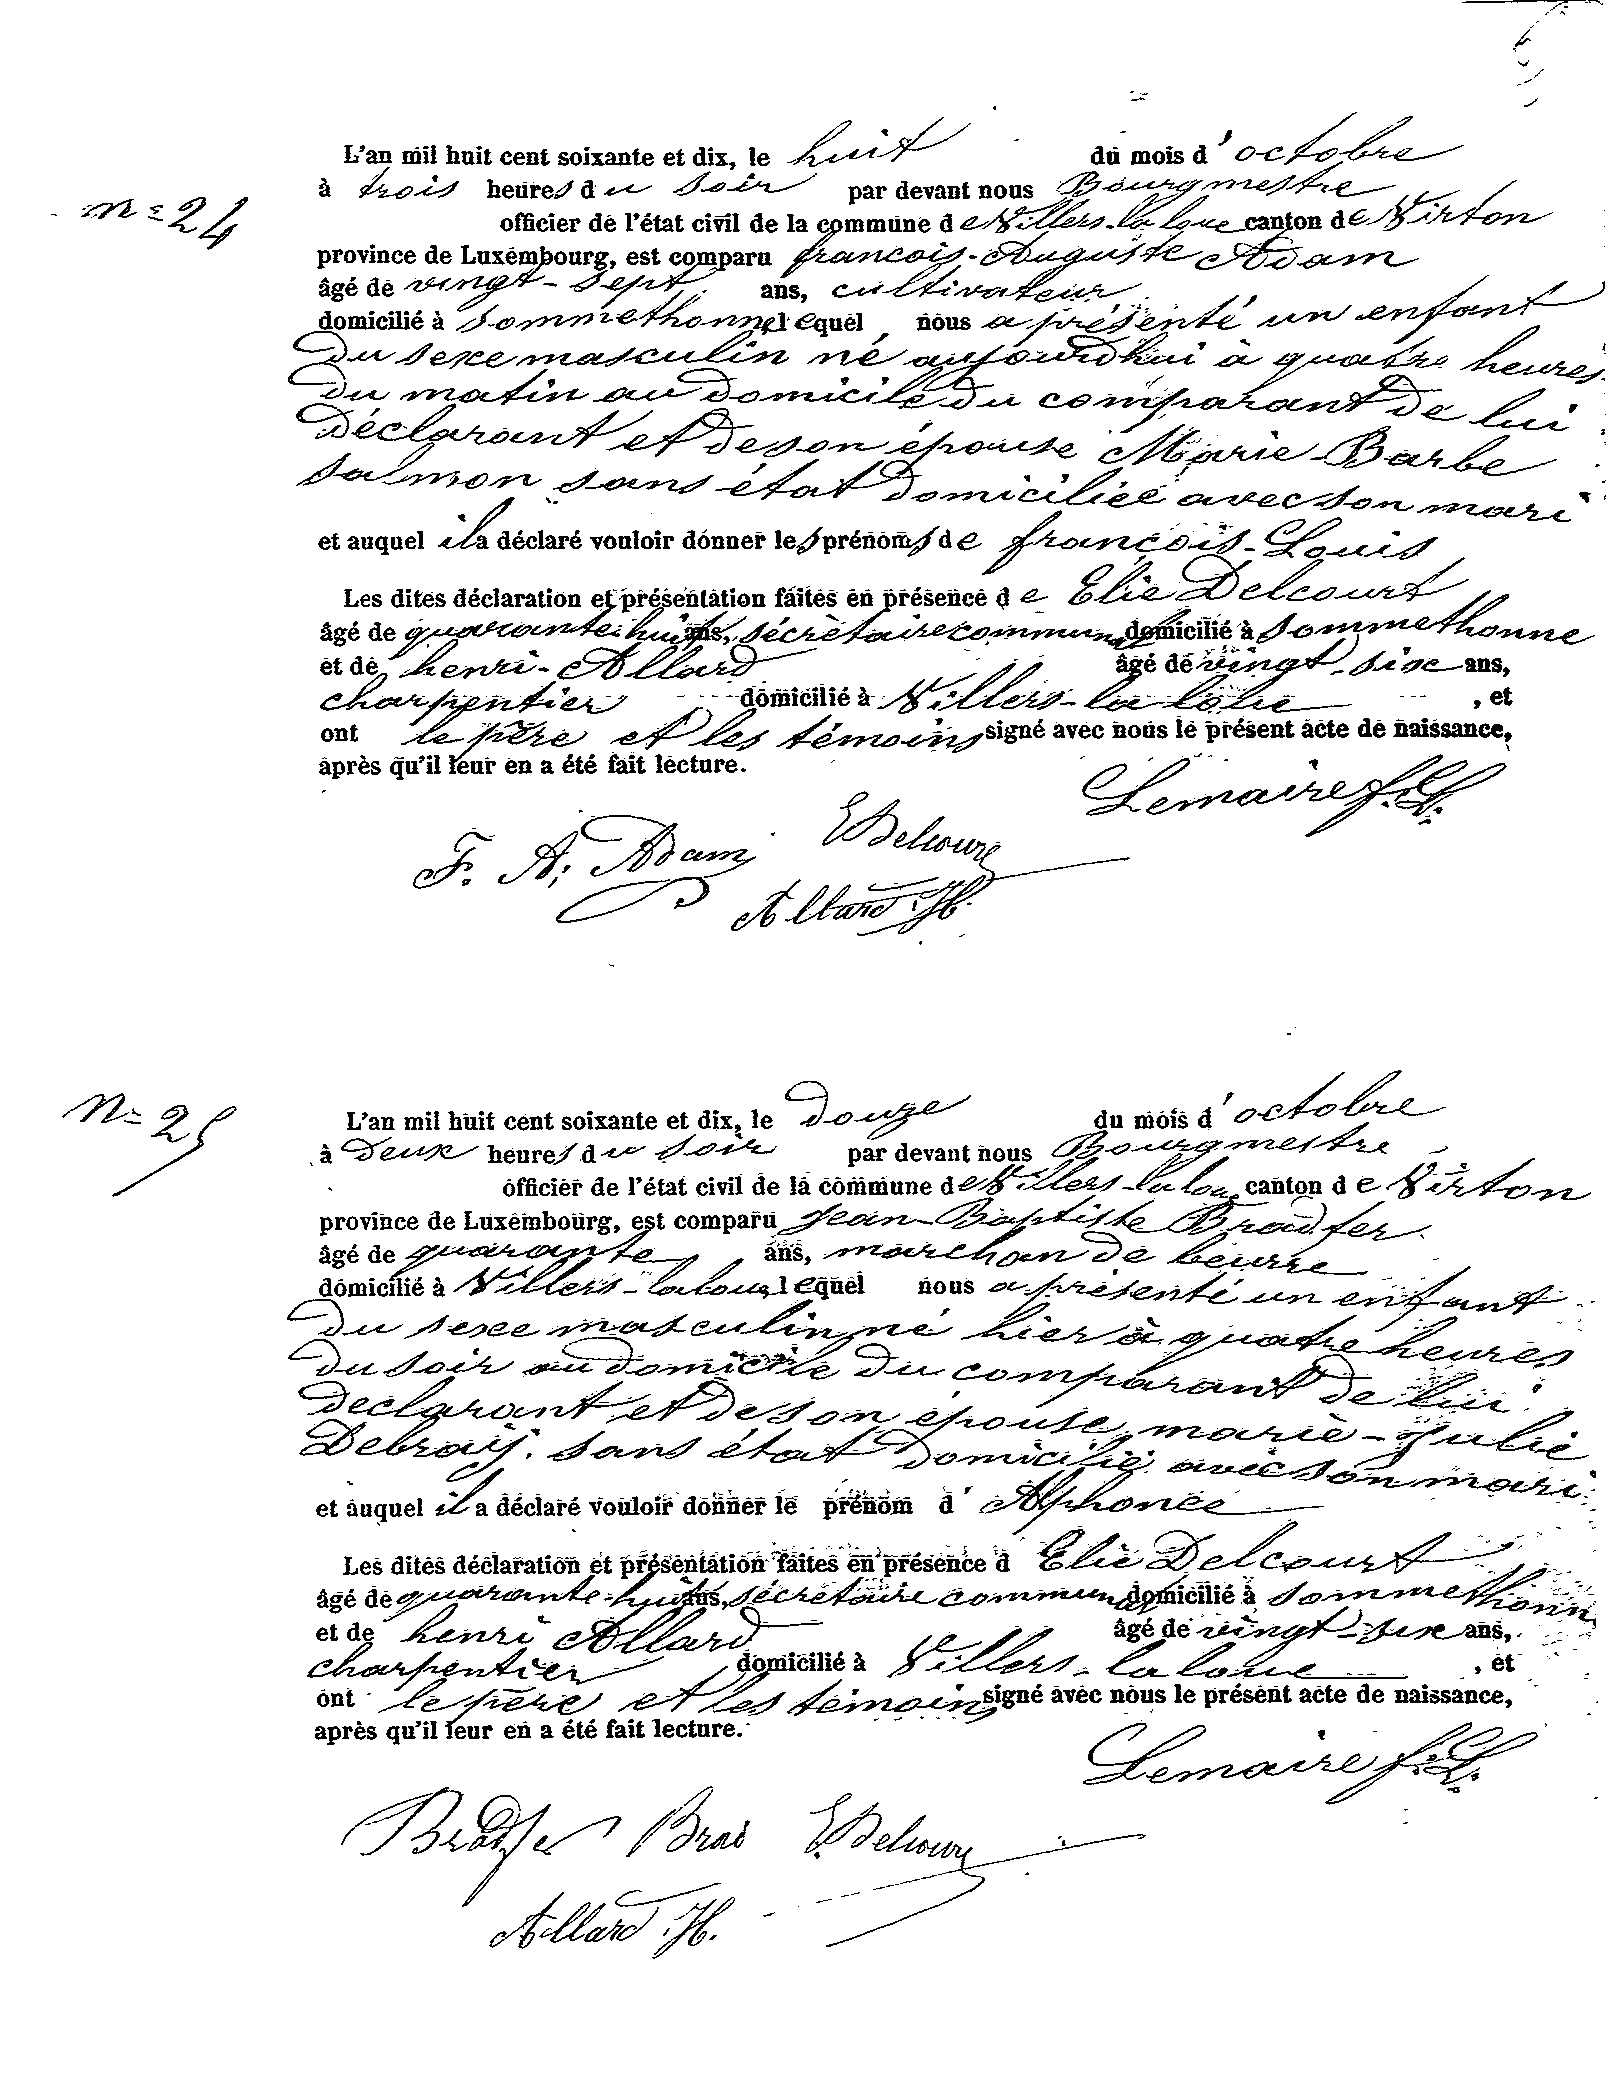 n= 24
L'an mil huit cent soixante et dix, le huit du mois d'octobre
à trois heures du soir par devant nous Bourgmestre
officier de l'état civil de la commune de Villers-la loue canton de Virton
province de Luxembourg, est comparu françois-Auguste Adam
âgé de vingt-sept ans, cultivateur
domicilié à Sommethonne lequel nous a présenté un enfant
du sexe masculin né aujourdhui à quatre heures
du matin au domicile du comparant de lui
déclarant et de son épouse Marie-Barbe
Salmon sans état domiciliée avec son mari
et auquel il a déclaré vouloir donner les prénoms de françois-Louis
Les dites déclaration et présentation faites en présence de Elie Delcourt
âgé de quarante-huit ans, sécrètaire communal domicilié à Sommethonne
et de henri-Allard âgé de vingt-six ans,
charpentier domicilié à Villers-la loue, et
ont le père et les témoins signé avec nous le présent acte de naissance,
après qu'il leur en a été fait lecture.
Lemaire f. L.
F. A. Adam EDelcourt
Allard H.
N= 25
L'an mil huit cent soixante et dix, le douze du mois d'octobre
à deux heures du soir par devant nous Bourgmestre
officier de l'état civil de la commune de Villers-la loue canton de Virton
province de Luxembourg, est comparu Jean-Baptiste Bradfer
âgé de quarante ans, marchan de beurre
domicilié à Villers-la loue lequel nous a présenté un enfant
du sexe masculin, né hier à quatre heures
du soir au domicile du comparant de lui
declarant et de son épouse, marie-Julie
Debraij. sans état domicilié avec son mari
et auquel il a déclaré vouloir donner le prénom d'Alphonce
Les dites déclaration et présentation faites en présence d Elie Delcourt
âgé de quarante-huit ans, sécrétaire communal domicilié à Sommethonn
et de henri Allard âgé de vingt-six ans,
charpentier domicilié à Villers-la loue, et
ont le père et les témoins signé avec nous le présent acte de naissance,
après qu'il leur en a été fait lecture.
Lemaire f. L.
Bradfer E. Delcourt
Allard H.